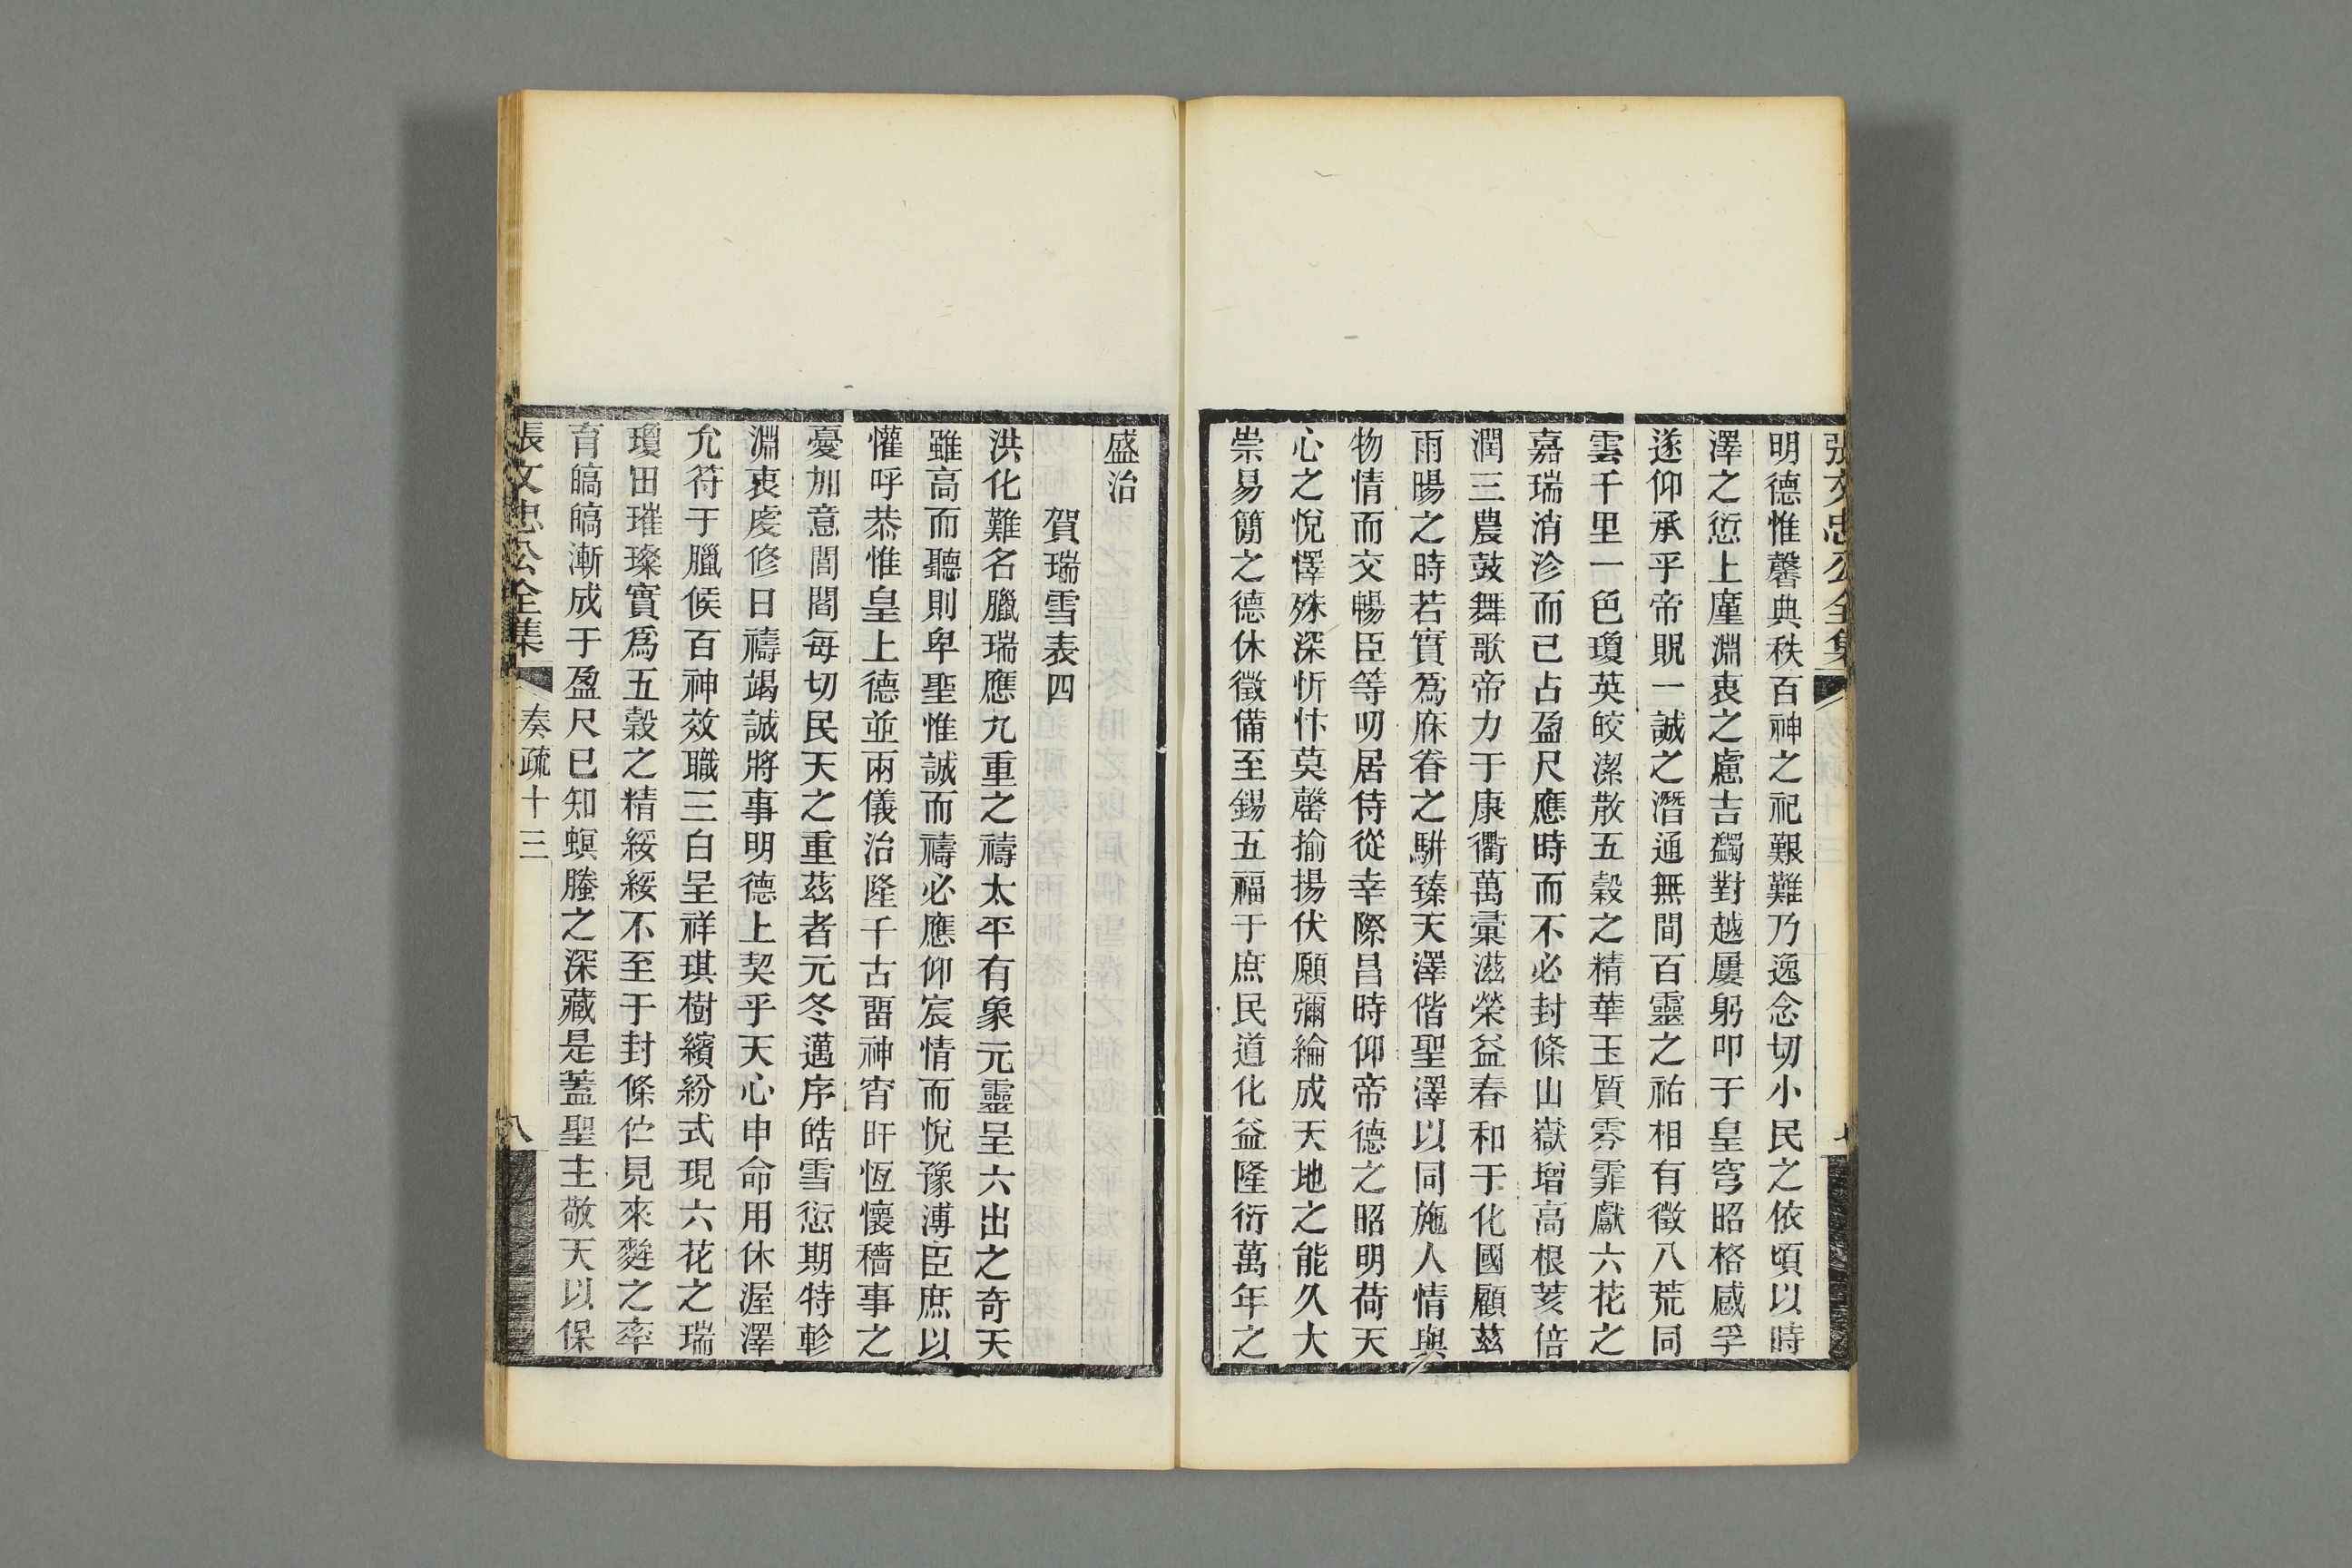 張文忠公全集
明德惟馨典秩百神之祀艱難乃逸念切小民之依頃以時
澤之愆上廑淵衷之慮吉蠲對越屢躬叩于皇穹昭格感孚
遂仰承乎帝貺一誠之潛通無間百靈之祐相有徵八荒同
雲千里一色瓊英皎潔散五穀之精華玉質雰霏獻六花之
嘉瑞消沴而已占盈尺應時而不必封條山嶽增高根荄倍
潤三農鼓舞歌帝力于康衢萬彙滋榮益春和于化國顧茲
雨暘之時若實為庥眷之駢臻天澤偕聖澤以同施人情與
物情而交暢臣等叨居侍從幸際昌時仰帝德之昭明荷天
心之悅懌殊深忻忭莫罄揄揚伏願彌綸成天地之能久大
崇易簡之德休徵備至錫五福于庶民道化益隆衍萬年之
盛治
賀瑞雪表四
洪化難名臘瑞應九重之禱太平有象元靈呈六出之奇天
雖高而聽則卑聖惟誠而禱必應仰宸情而悅豫溥臣庶以
懽呼恭惟皇上德並兩儀治隆千古畱神宵旰恆懷穡事之
憂加意閭閻每切民天之重茲者元冬邁序皓雪愆期特軫
淵衷虔修日禱竭誠將事明德上契乎天心申命用休渥澤
允符于臘候百神效職三白呈祥琪樹繽紛式現六花之瑞
瓊田璀璨實爲五穀之精綏綏不至于封條伫見來麰之率
育皜皜漸成于盈尺已知螟螣之深藏是蓋聖主敬天以保
張文忠公全集
奏疏十三
八